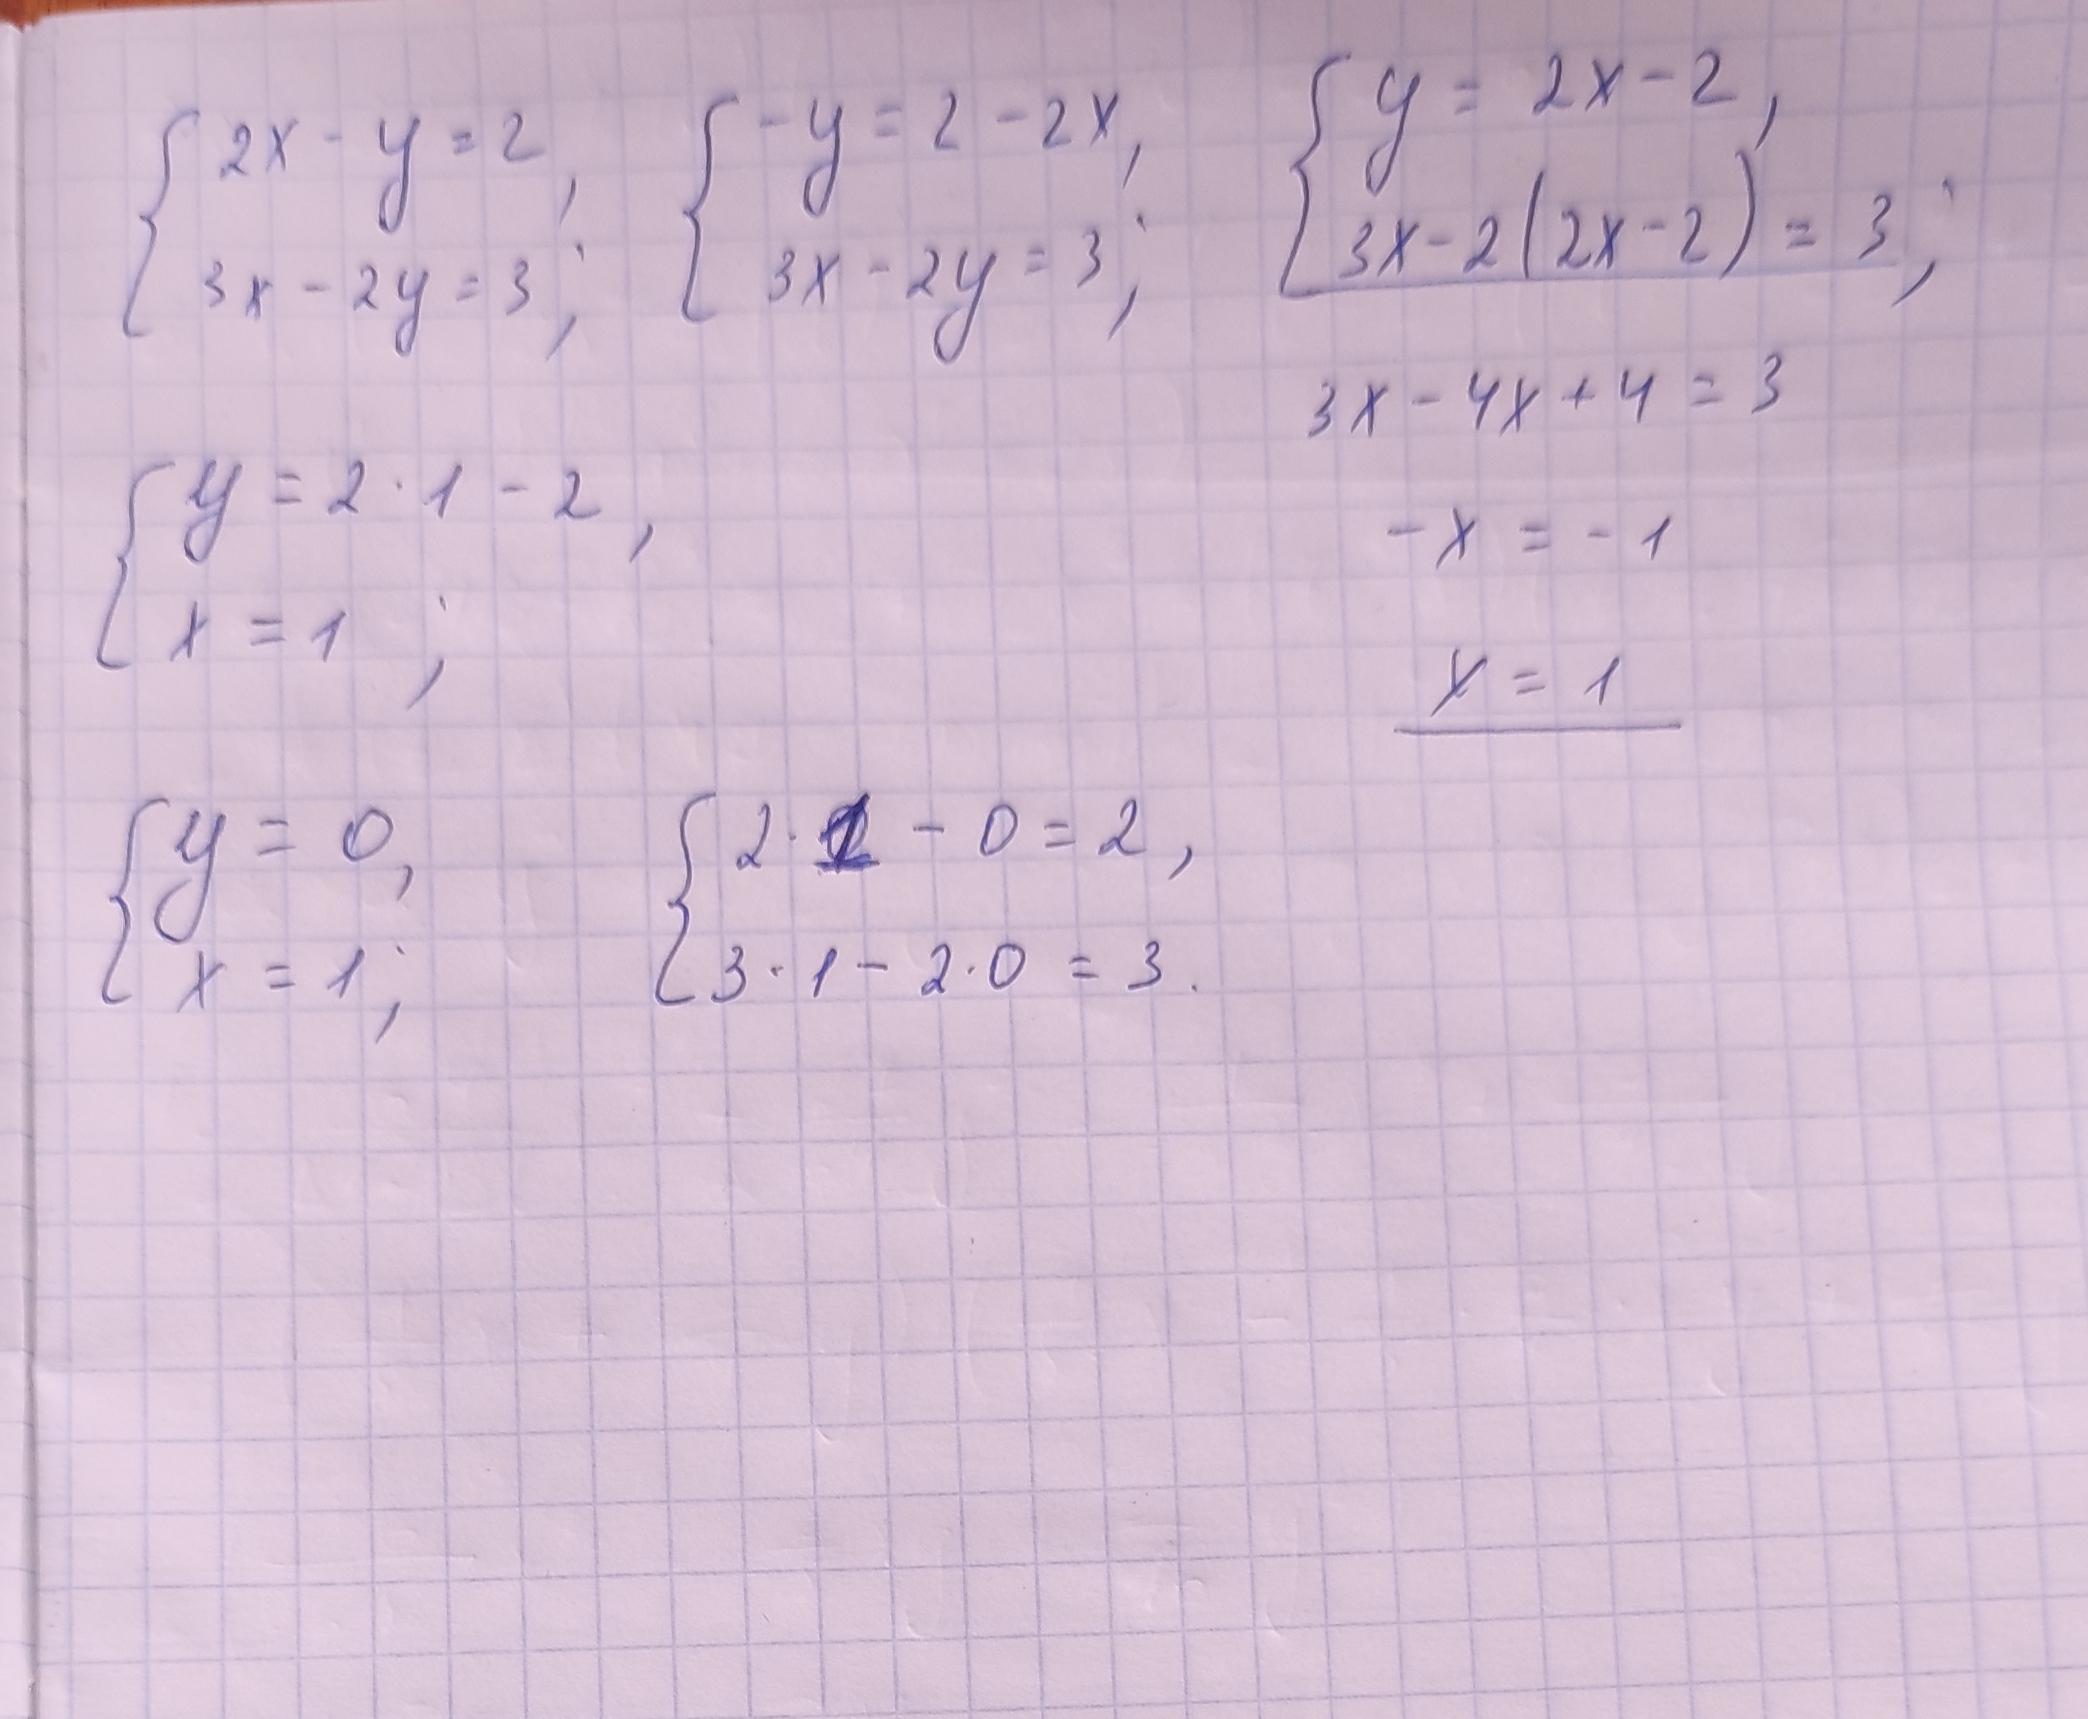 { 2x - y = 2,
3x - 2y = 3;
{ -y = 2 - 2x,
3x - 2y = 3;
{ y = 2x - 2,
3x - 2(2x - 2) = 3;
3x - 4x + 4 = 3
-x = -1
x = 1
{ y = 2 · 1 - 2,
x = 1;
{ y = 0,
x = 1;
{ 2 · 1 - 0 = 2,
3 · 1 - 2 · 0 = 3.